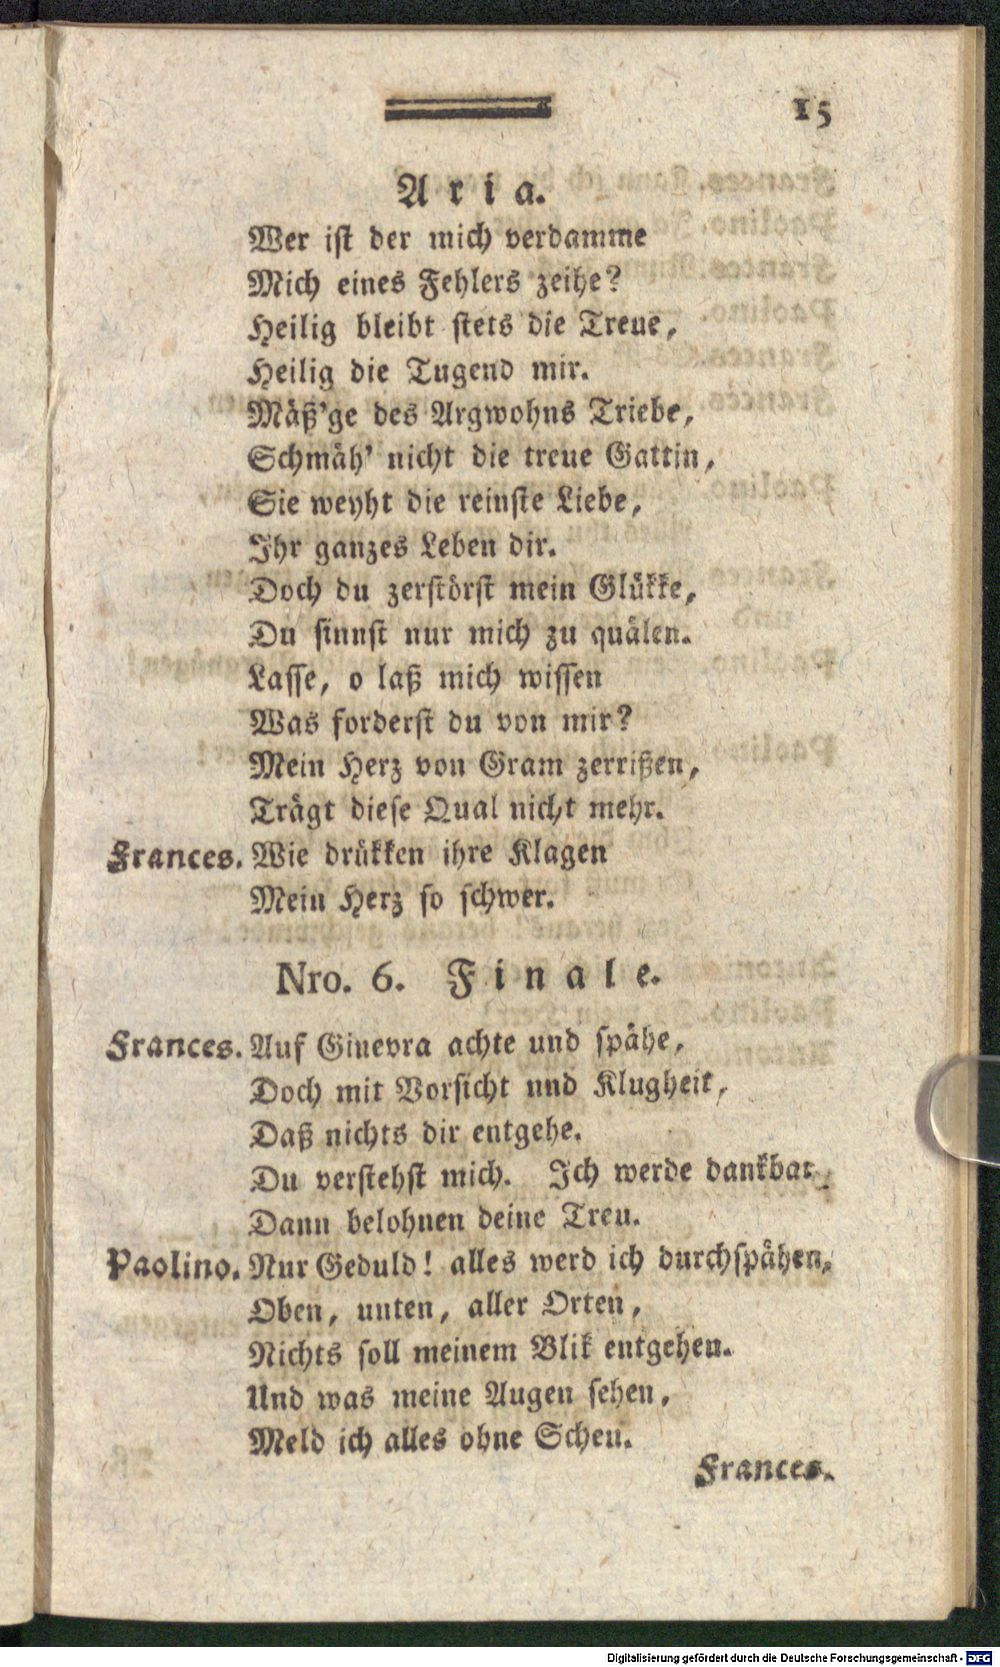 15
Aria.
Wer ist der mich verdamme
Mich eines Fehlers zeihe?
Heilig bleibt stets die Treue,
Heilig die Tugend mir.
Mäß'ge des Argwohns Triebe,
Schmäh' nicht die treue Gattin,
Sie weyht die reinste Liebe,
Ihr ganzes Leben dir.
Doch du zerstörst mein Glükke,
Du sinnst nur mich zu quälen.
Lasse, o laß mich wissen
Was forderst du von mir?
Mein Herz von Gram zerrißen,
Trägt diese Qual nicht mehr.
Frances. Wie drükken ihre Klagen
Mein Herz so schwer.
Nro. 6. Finale.
Frances. Auf Ginevra achte und spähe,
Doch mit Vorsicht und Klugheit,
Daß nichts dir entgehe.
Du verstehst mich. Ich werde dankbar
Dann belohnen deine Treu.
Paolino. Nur Geduld! alles werd ich durchspähen,
Oben, unten, aller Orten,
Nichts soll meinem Blik entgehen.
Und was meine Augen sehen,
Meld ich alles ohne Scheu.
Frances.
Digitalisierung gefördert durch die Deutsche Forschungsgemeinschaft - DFG